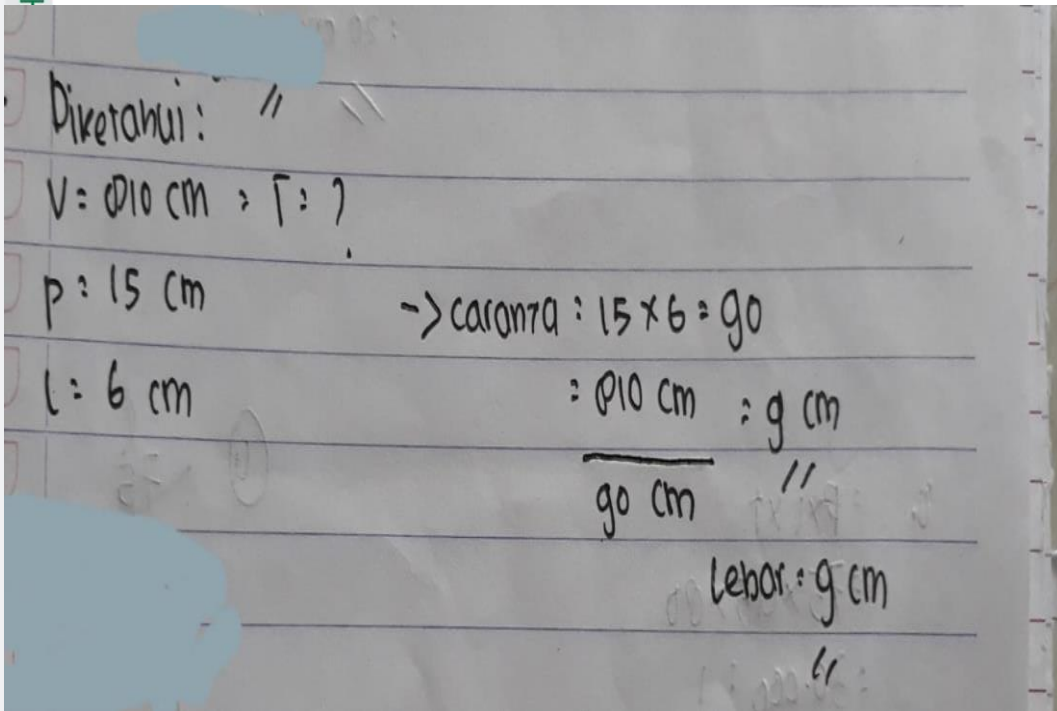 Diketahui : "
V = 810 cm , T = ?
p = 15 cm
-> caranya : 15 x 6 = 90
l = 6 cm
= 810 cm = 9 cm
90 cm "
lebar = 9 cm
"